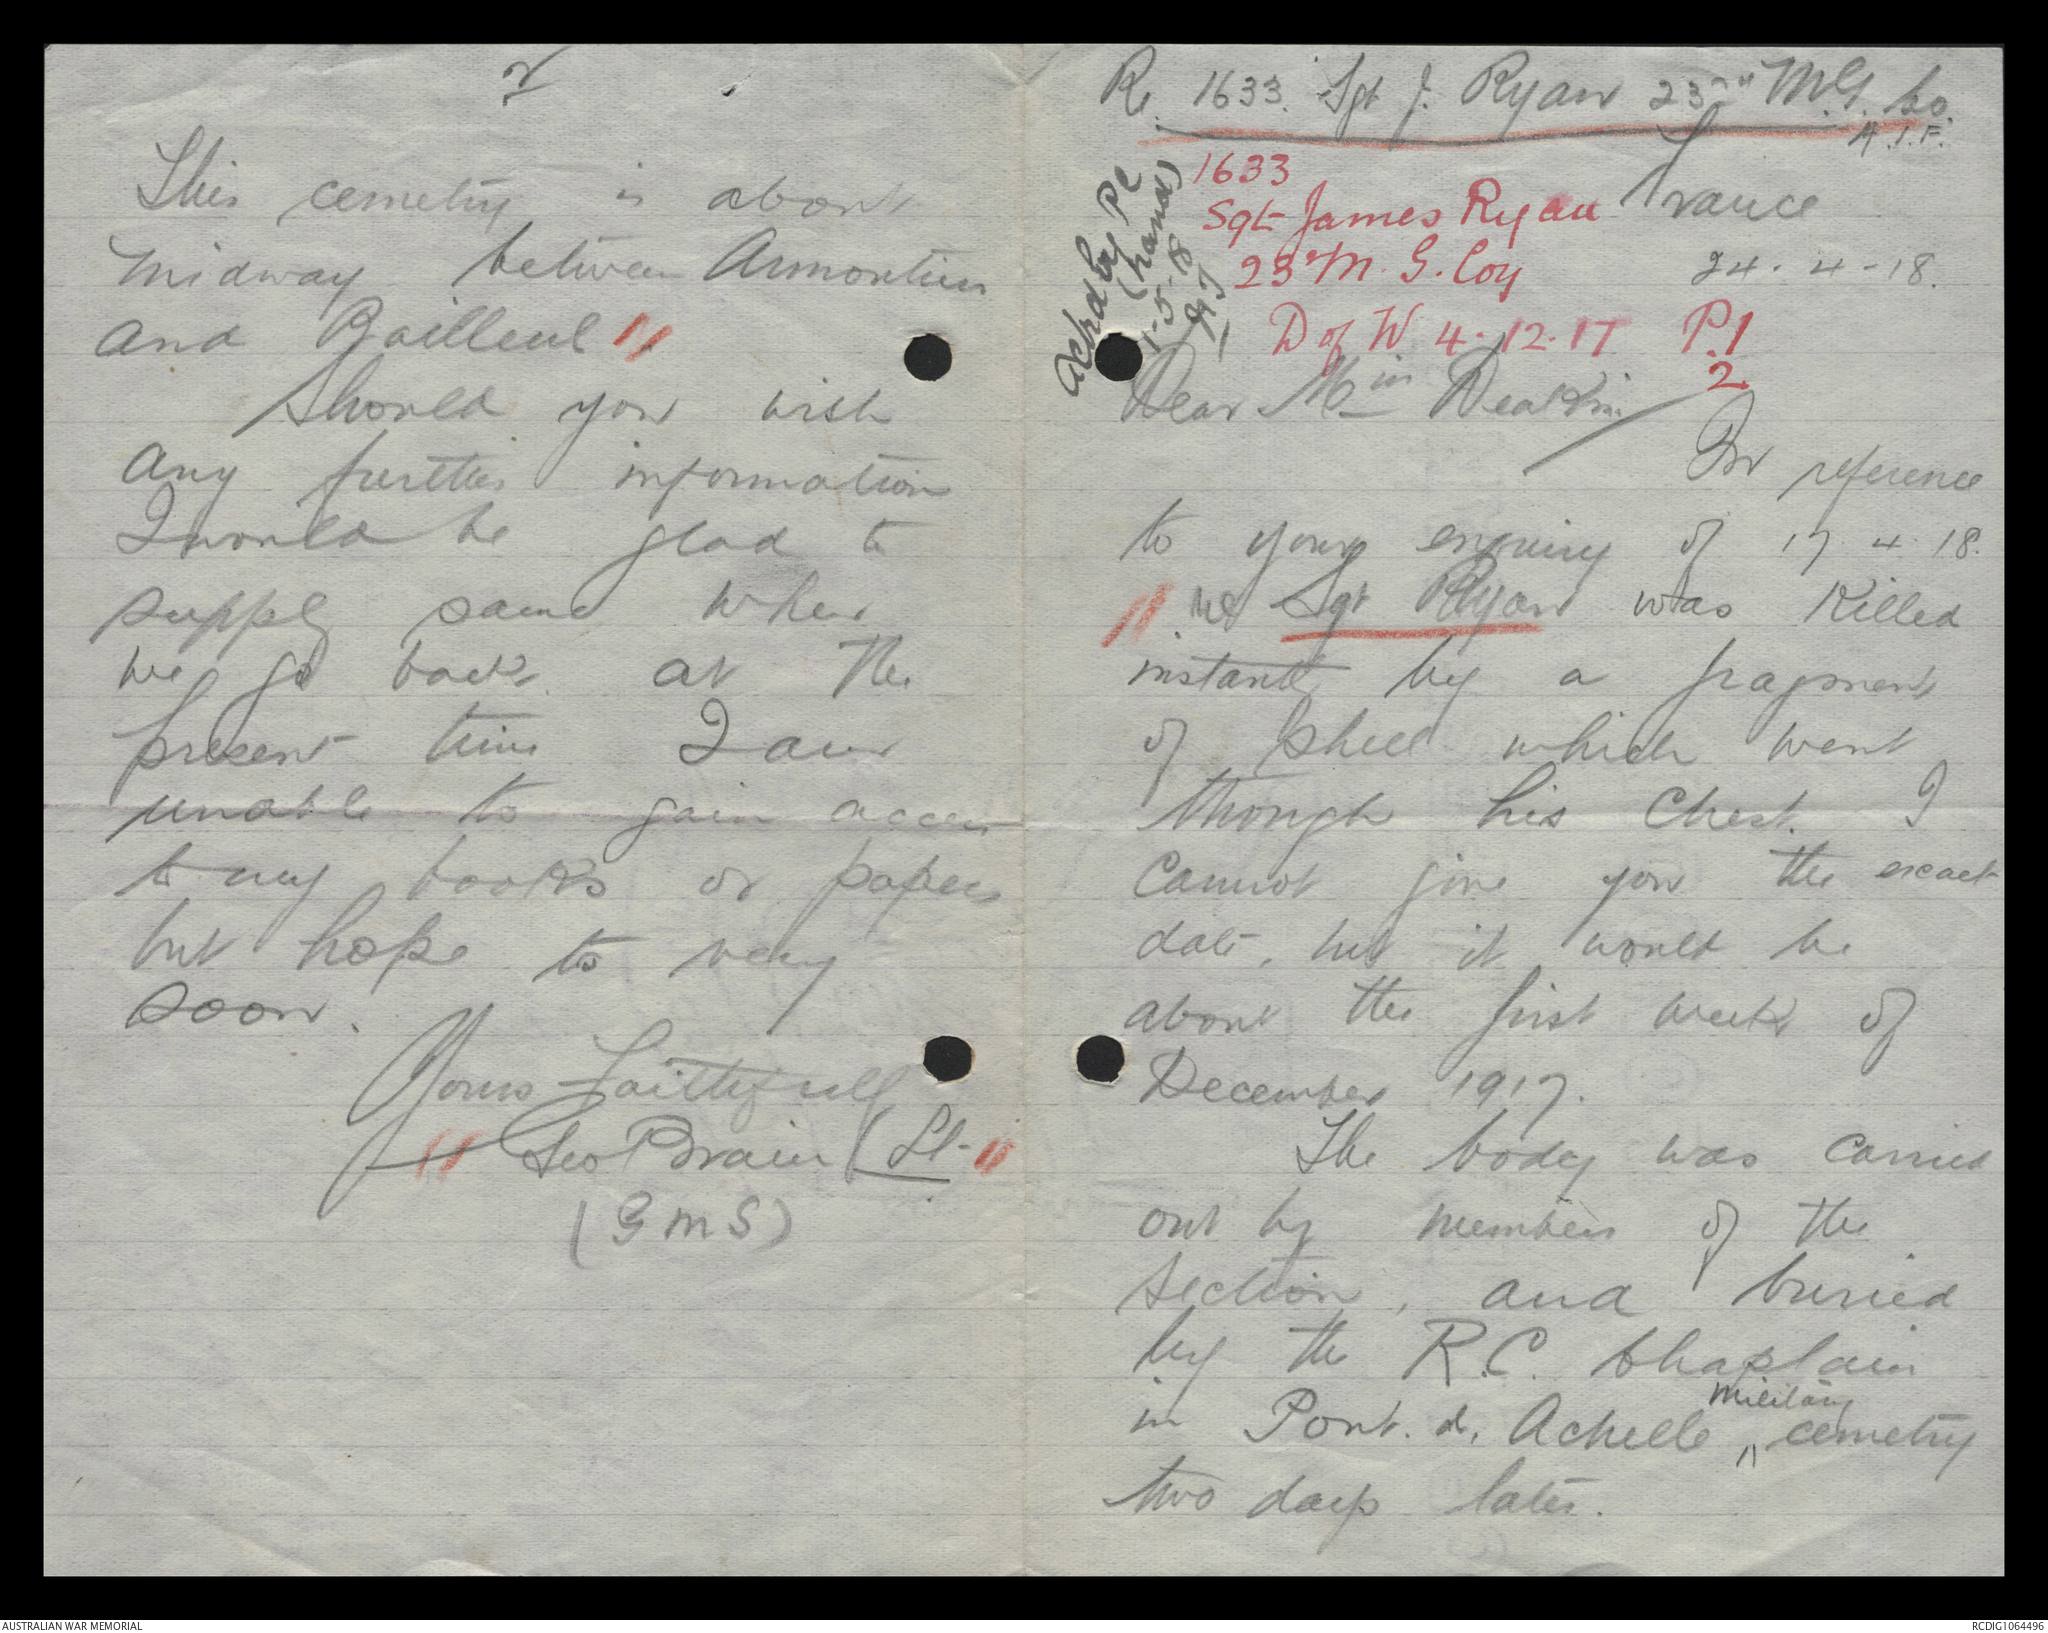 Re. 1633. Sgt J. Ryan 23rd M.G. Co.
A.I.F.
1633
Sgt James Ryan
23rd M. G. Coy
D of W 4-12-17 P.1
2
Ackd by PC
(hand)
1-5-18
France
24-4-18.
Dear Miss Deakin
In reference
to your enquiry of 17.4.18.
" re Sgt Ryan was Killed
instantly by a fragment
of shell which went
through his chest. I
cannot give you the exact
date, but it would be
about the first week of
December 1917.
The body was carried
out by members of the
section, and buried
by the R.C. Chaplain
military
in Pont. d. Achelle cemetry
two days later.
2
This cemetry is about
midway between Armentiers
and Bailleul "
Should you wish
any further information
I would be glad to
supply same when
we go back at the
present time I am
unable to gain access
to my books or papers
but hope to very
soon.
Yours Faithfully
" Geo Brain (Lt- "
(G M S)
AUSTRALIAN WAR MEMORIAL
RCDIG1064496